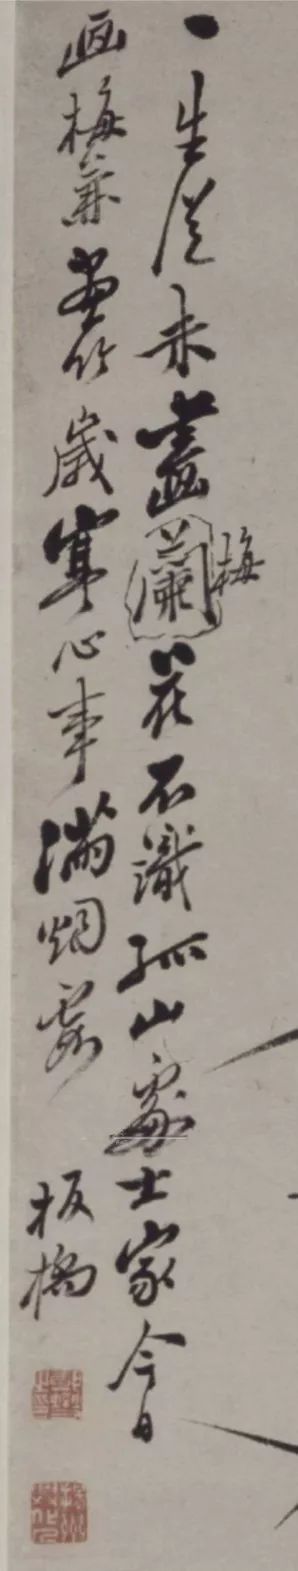 一生從未畫蘭花不識孤山處士家今日
梅
画梅兼畫竹歲寒心事滿烟霞
板橋